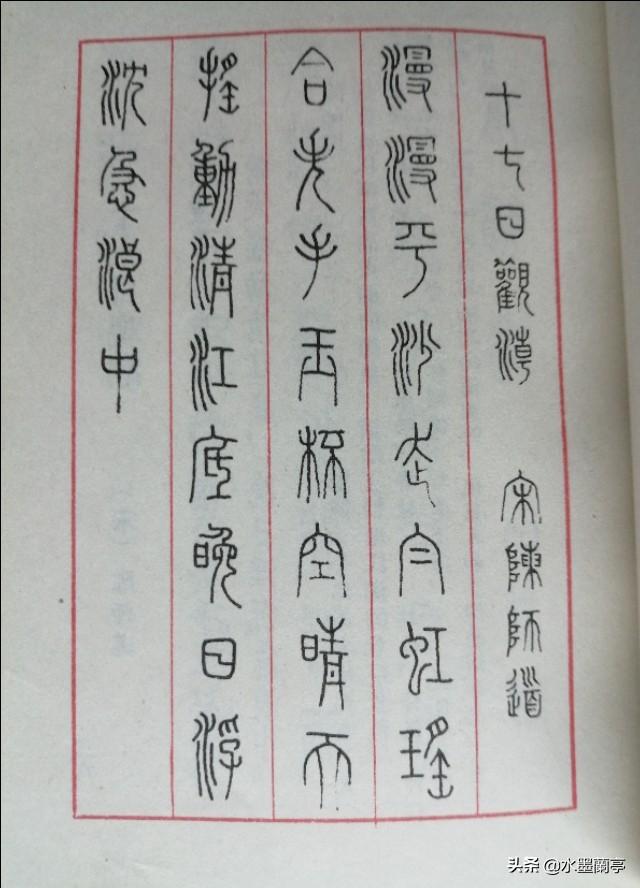 十七日觀潮　宋陳師道
漫漫平沙走白虹瑤
台失手玉杯空晴天
搖動清江底晚日浮
沈急浪中
头条 @水墨蘭亭